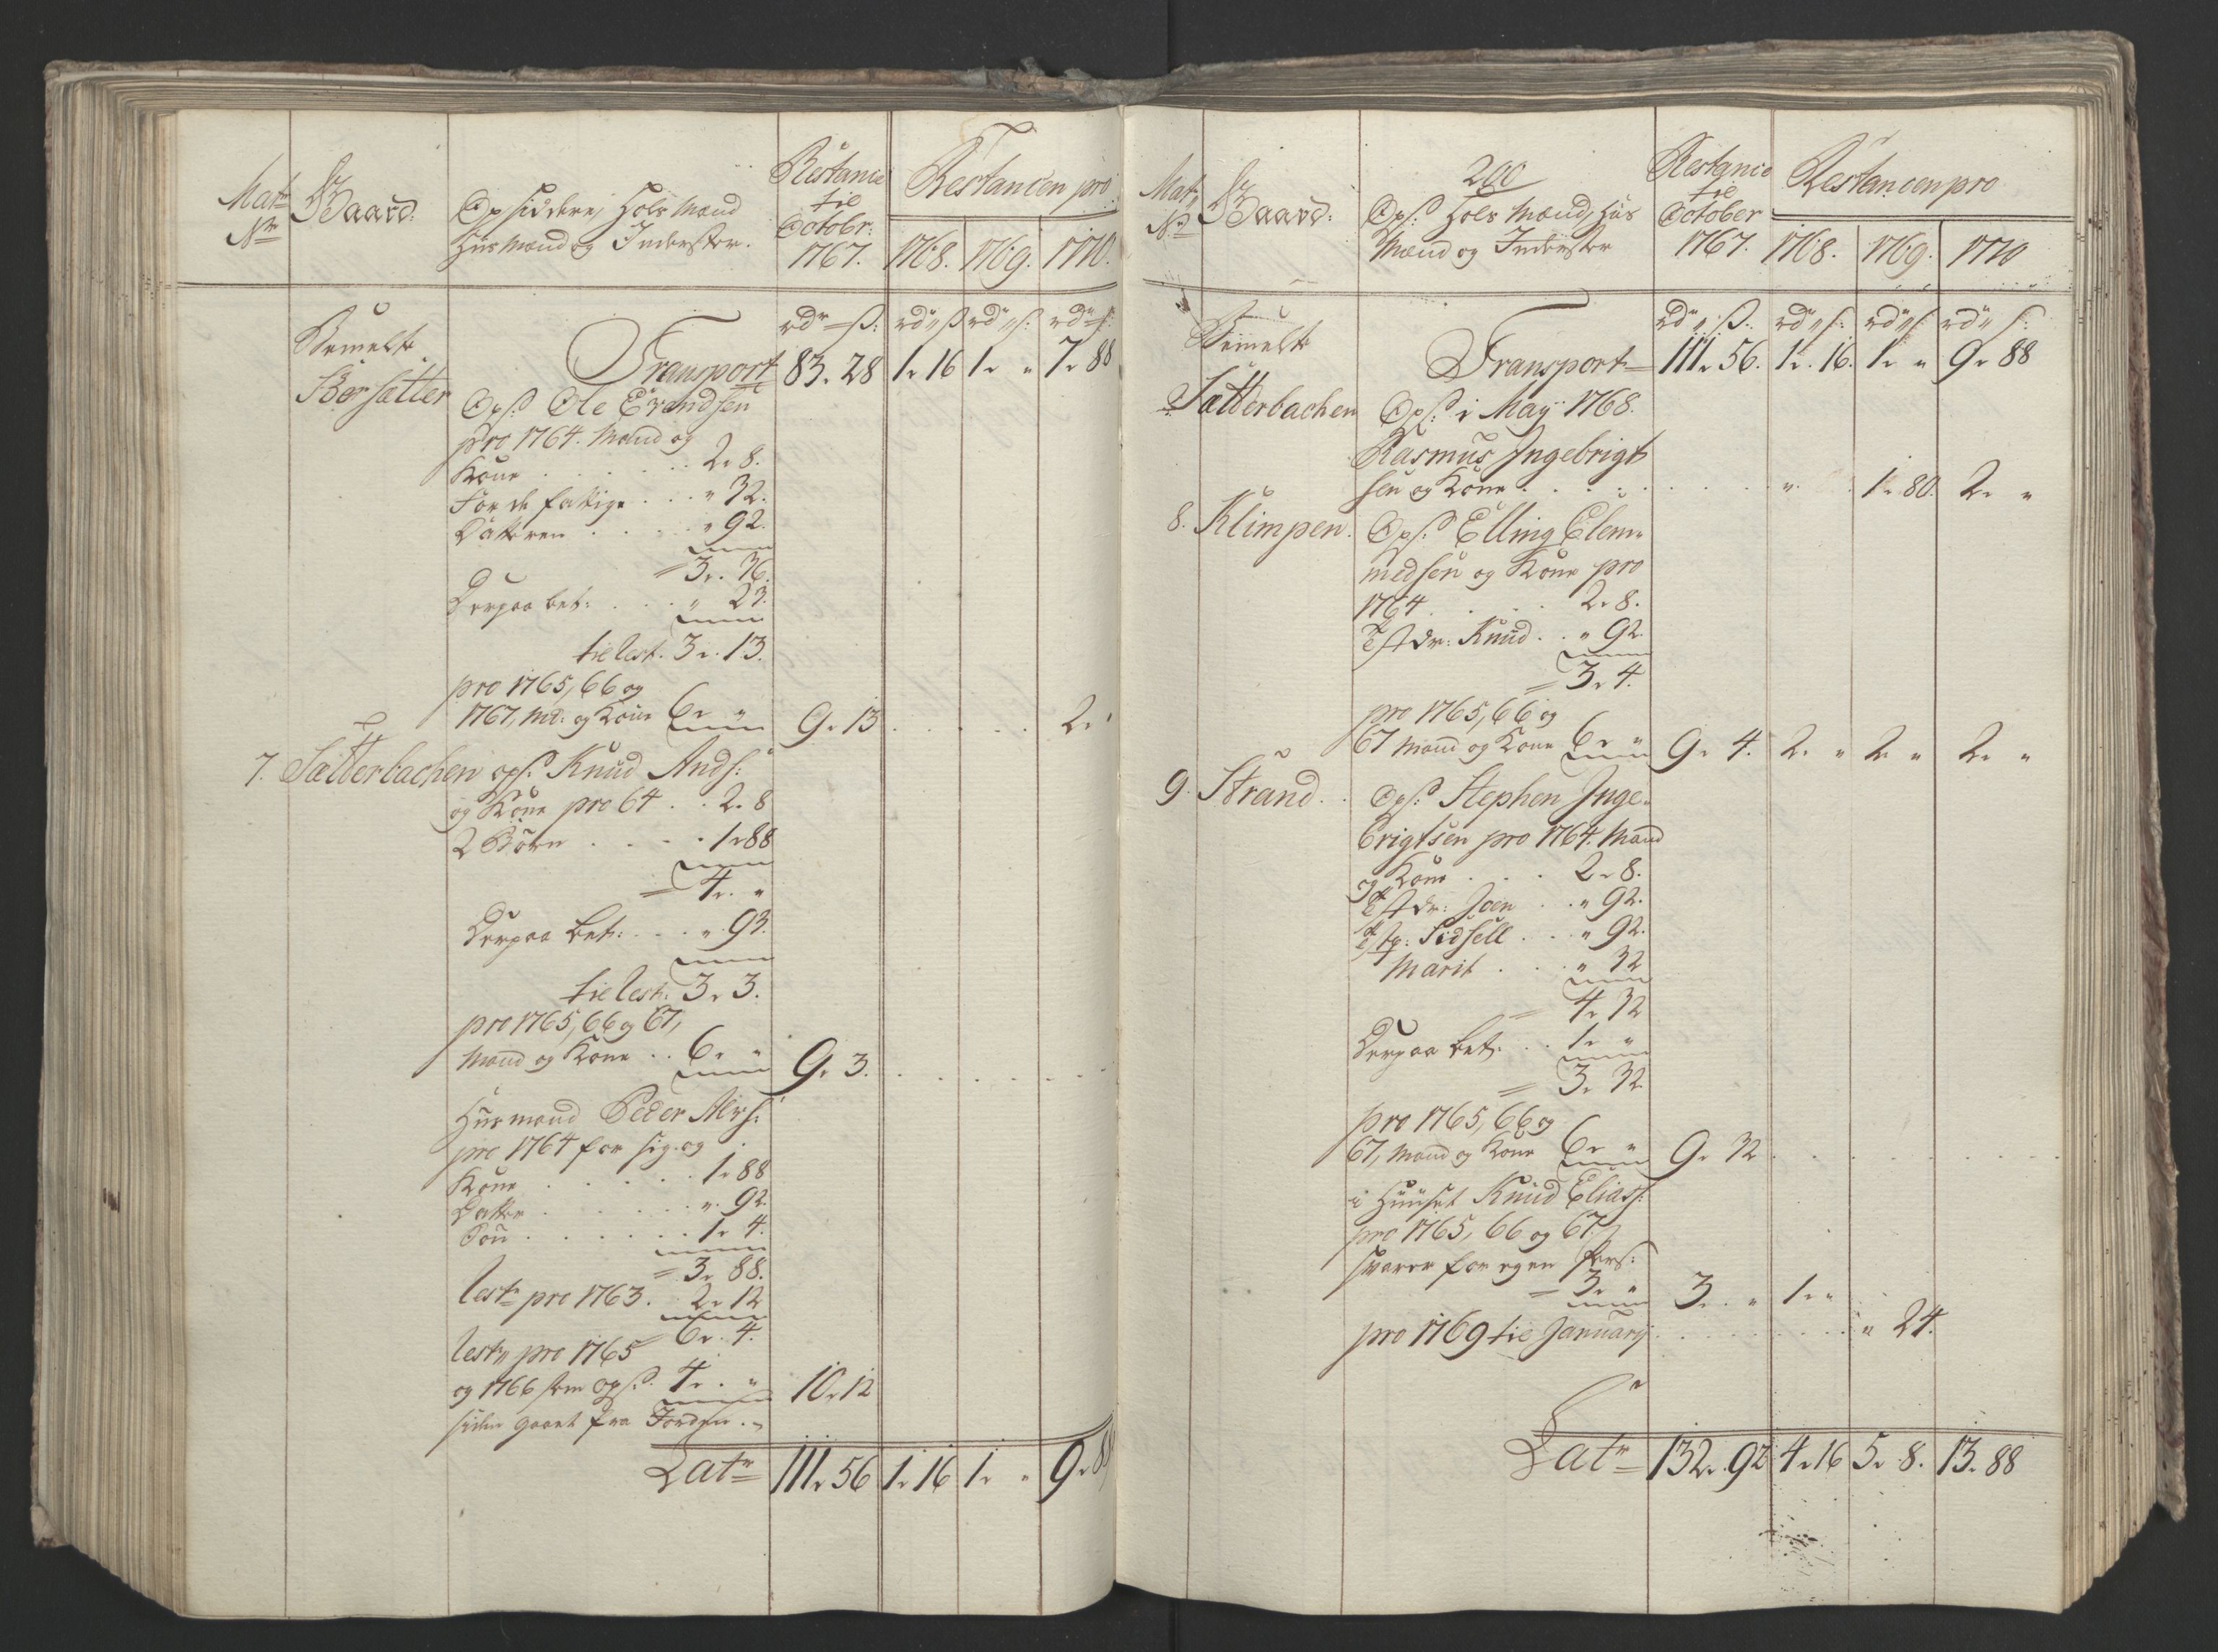 Mat:
No
Gaard:
Opsiddere, Hols Mænd
Huusmænd og Inderster.
Restance
til
Octobr:
1767.
Restancen pro
1768. 1769. 1770.
rdr ß: rd ß rd ß: rd ß:
Bemelte
Børsætter
Transport 83. 28 1. 16 1. " 7. 88
Ops: Ole Evendsen
pro 1764. Mand og
Kone . . . . . 2. 8.
For de fattige . . . " 32.
Datteren . . . . " 92.
= 3. 36.
Derpaa bet: . . . " 23.
til Rest. 3. 13.
pro 1765, 66 og
1767, Md: og Kone 6. " 9. 13 . . . . . 2. "
7. Sætterbachen ops: Knud Ands:
og Kone pro 64 . . 2. 8
2 Børn . . . . 1. 88
= 4. "
Derpaa bet: . . . " 93.
til Rest: 3. 3.
pro 1765, 66 og 67,
Mand og Kone . . 6. " 9. 3. . . . . . .
Huusmand Peder
pro 1764 for sig og
Kone . . . . . 1. 88
Datter . . . . . " 92
Søn . . . . . . 1. 4.
= 3. 88.
Rest pro 1763. 2. 12
= 6. 4.
Rest pro 1765
og 1766 som ops: 4. " 10. 12
siden gaaet fra Jorden.
Lat 111. 56 1. 16 1. " 9. 88
Mat:
No
Gaard:
200
Ops: Hols Mænd, Huus
Mænd og Inderster
Restance
til
October
1767.
Restancen pro
1768. 1769. 1770
rd ß. rd ß: rd ß rd ß:
Bemelte
Sætterbachen
Transport 111. 56. 1. 16. 1. " 9. 88
Ops: i May 1768.
Rasmus Ingebrigt
sen og Kone . . . . . . . . " . 1. 80. 2. "
8. Klimpen. Ops: Elling Clem-
medsen og Kone pro
1764 . . . . 2. 8.
Tstdr: Knud . . " 92
= 3. 4.
pro 1765, 66 og
67 Mand og Kone 6. " 9. 4. 2. " 2. " 2. "
9. Strand . . Ops: Stephen Inge-
brigtsen pro 1764. Mand
og Kone . . . 2. 8.
Tstdr: Joen . . " 92.
Tstp: Sidsell . . " 92.
Marit . . . " 32
= 4. 32
Derpaa bet: . . 1. "
= 3. 32
pro 1765, 66 og
67, Mand og Kone 6. " 9. 32 . . . . . . .
i Huuset Knud Eliass:
pro 1765, 66 og 67.
svarer for egen Pers:
= 3. " 3. " 1. "
pro 1769 til January . . . . . . . " 24.
Lat 132. 92 4. 16 5. 8. 13. 88